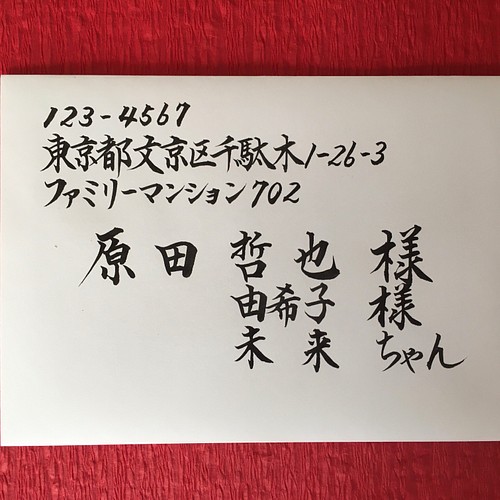 123-4567
東京都文京区千駄木1-26-3
ファミリーマンション702
原田 哲也 様
由希子 様
未来 ちゃん